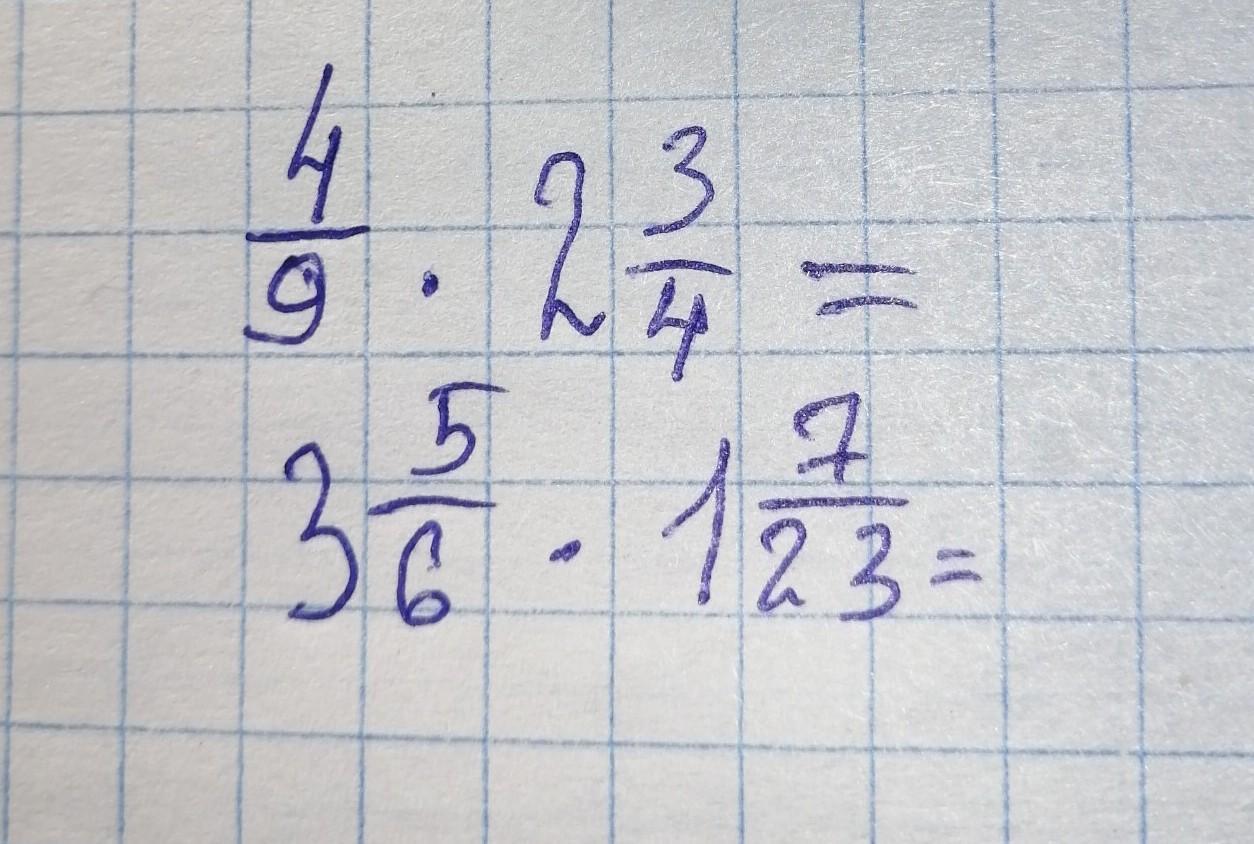 4/9 · 2 3/4 =
3 5/6 · 1 7/23 =